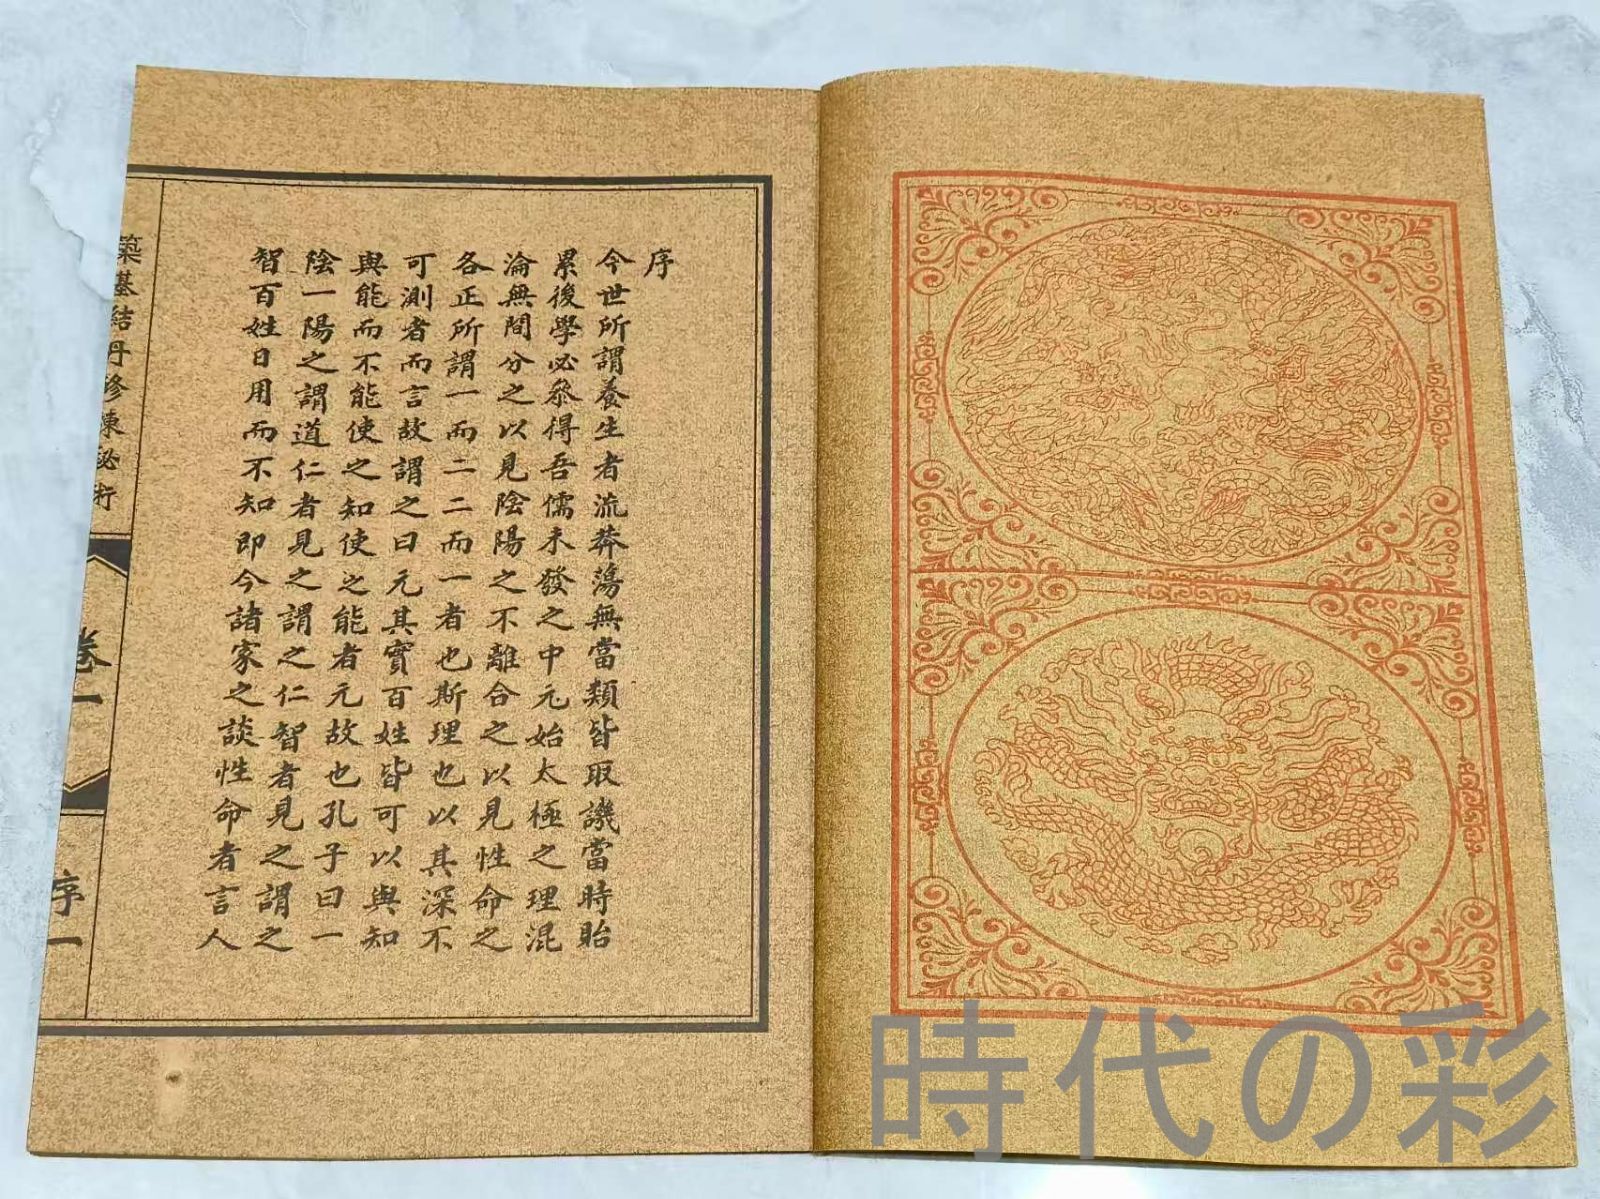 序
今世所謂養生者流莽蕩無當類皆取譏當時貽
累後學必叅得吾儒未發之中元始太極之理混
淪無間分之以見陰陽之不離合之以見性命之
各正所謂一而二二而一者也斯理也以其深不
可測者而言故謂之曰元其實百姓皆可以與知
與能而不能使之知使之能者元故也孔子曰一
陰一陽之謂道仁者見之謂之仁智者見之謂之
智百姓日用而不知即今諸家之談性命者言人
築基結丹修煉秘術
卷一
序一
時代の彩